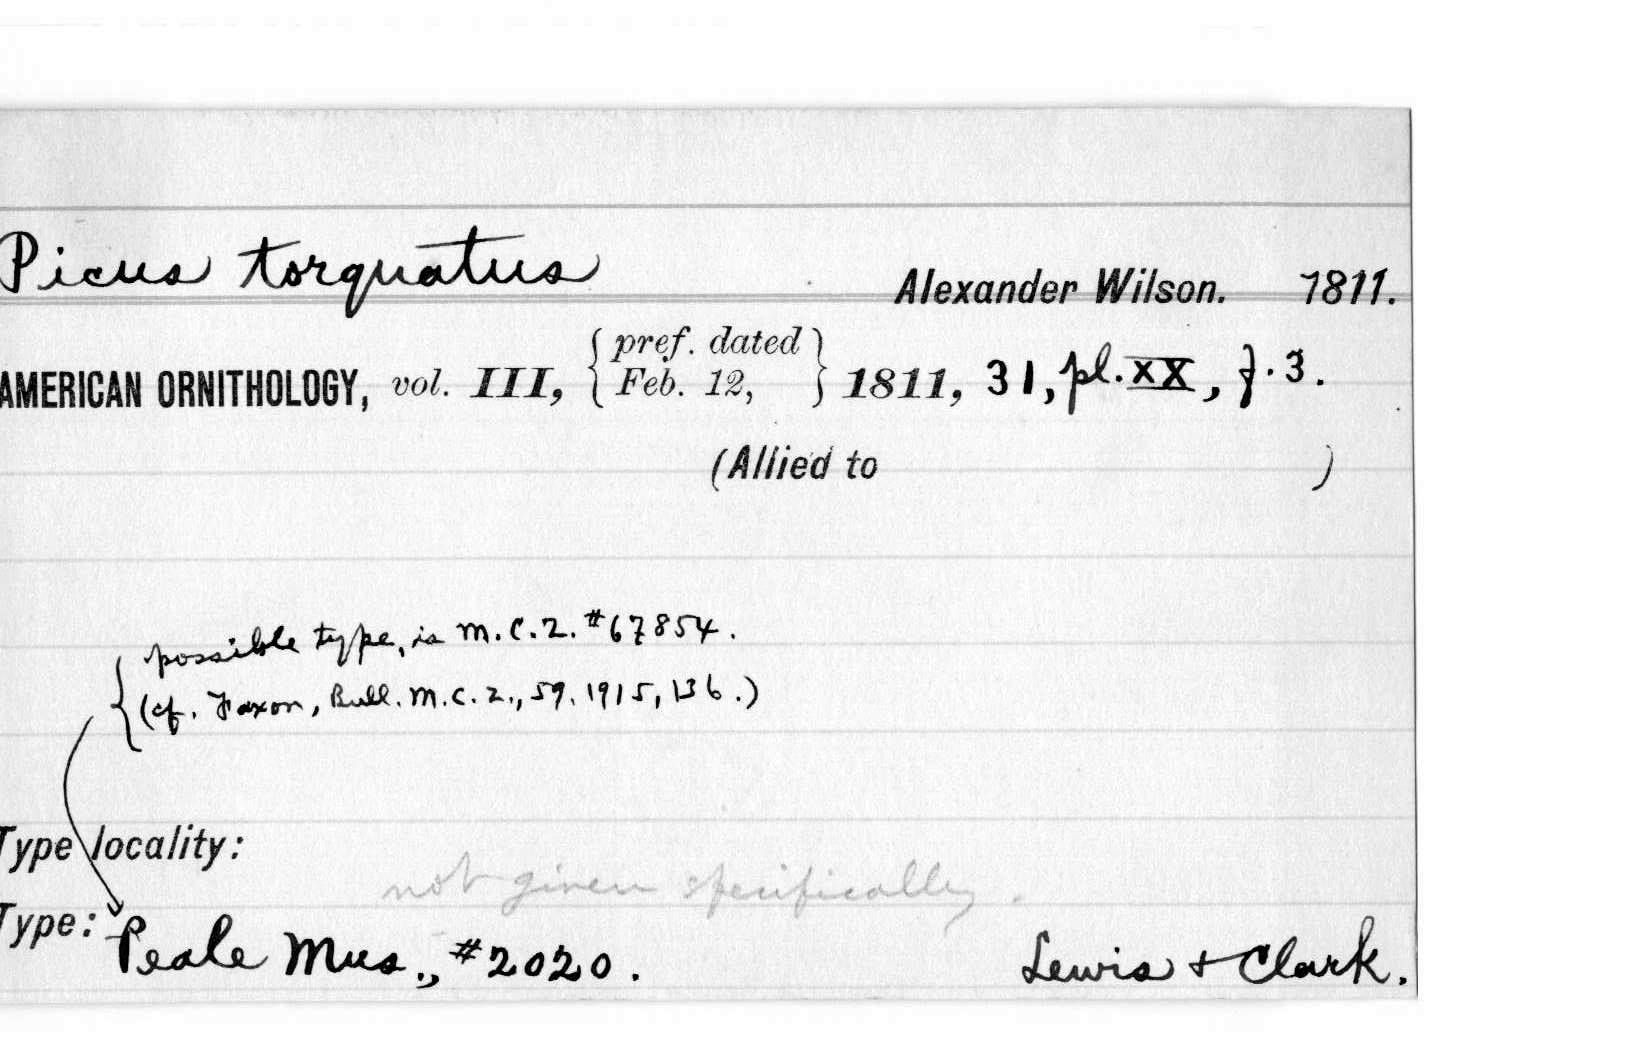 Picus torquatus
Alexander Wilson. 1811.
AMERICAN ORNITHOLOGY, vol. III, {pref. dated Feb. 12,} 1811, 31, pl. XX, f. 3.
(Allied to )
possible type, is M.C.Z. #67854.
(cf. Faxon, Bull. M.C.Z., 59, 1915, 136.)
Type locality:
not given specifically.
Type: Peale Mus., #2020. Lewis + Clark.